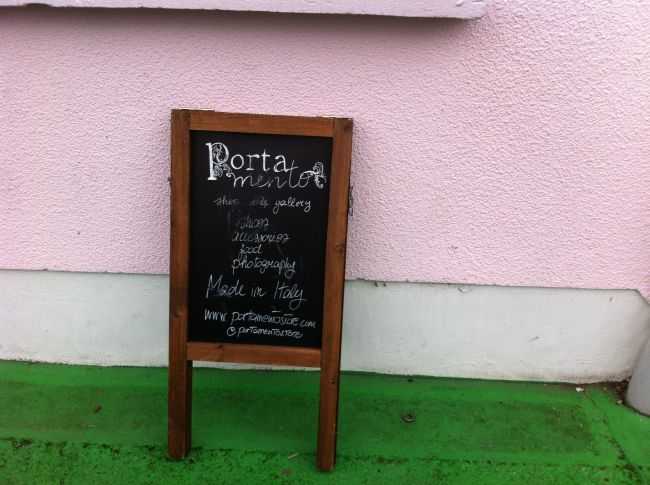 Porta
mento
shop and gallery
shoes
accessories
food
photography
Made in Italy
www.portamentostore.com
@portamentostore